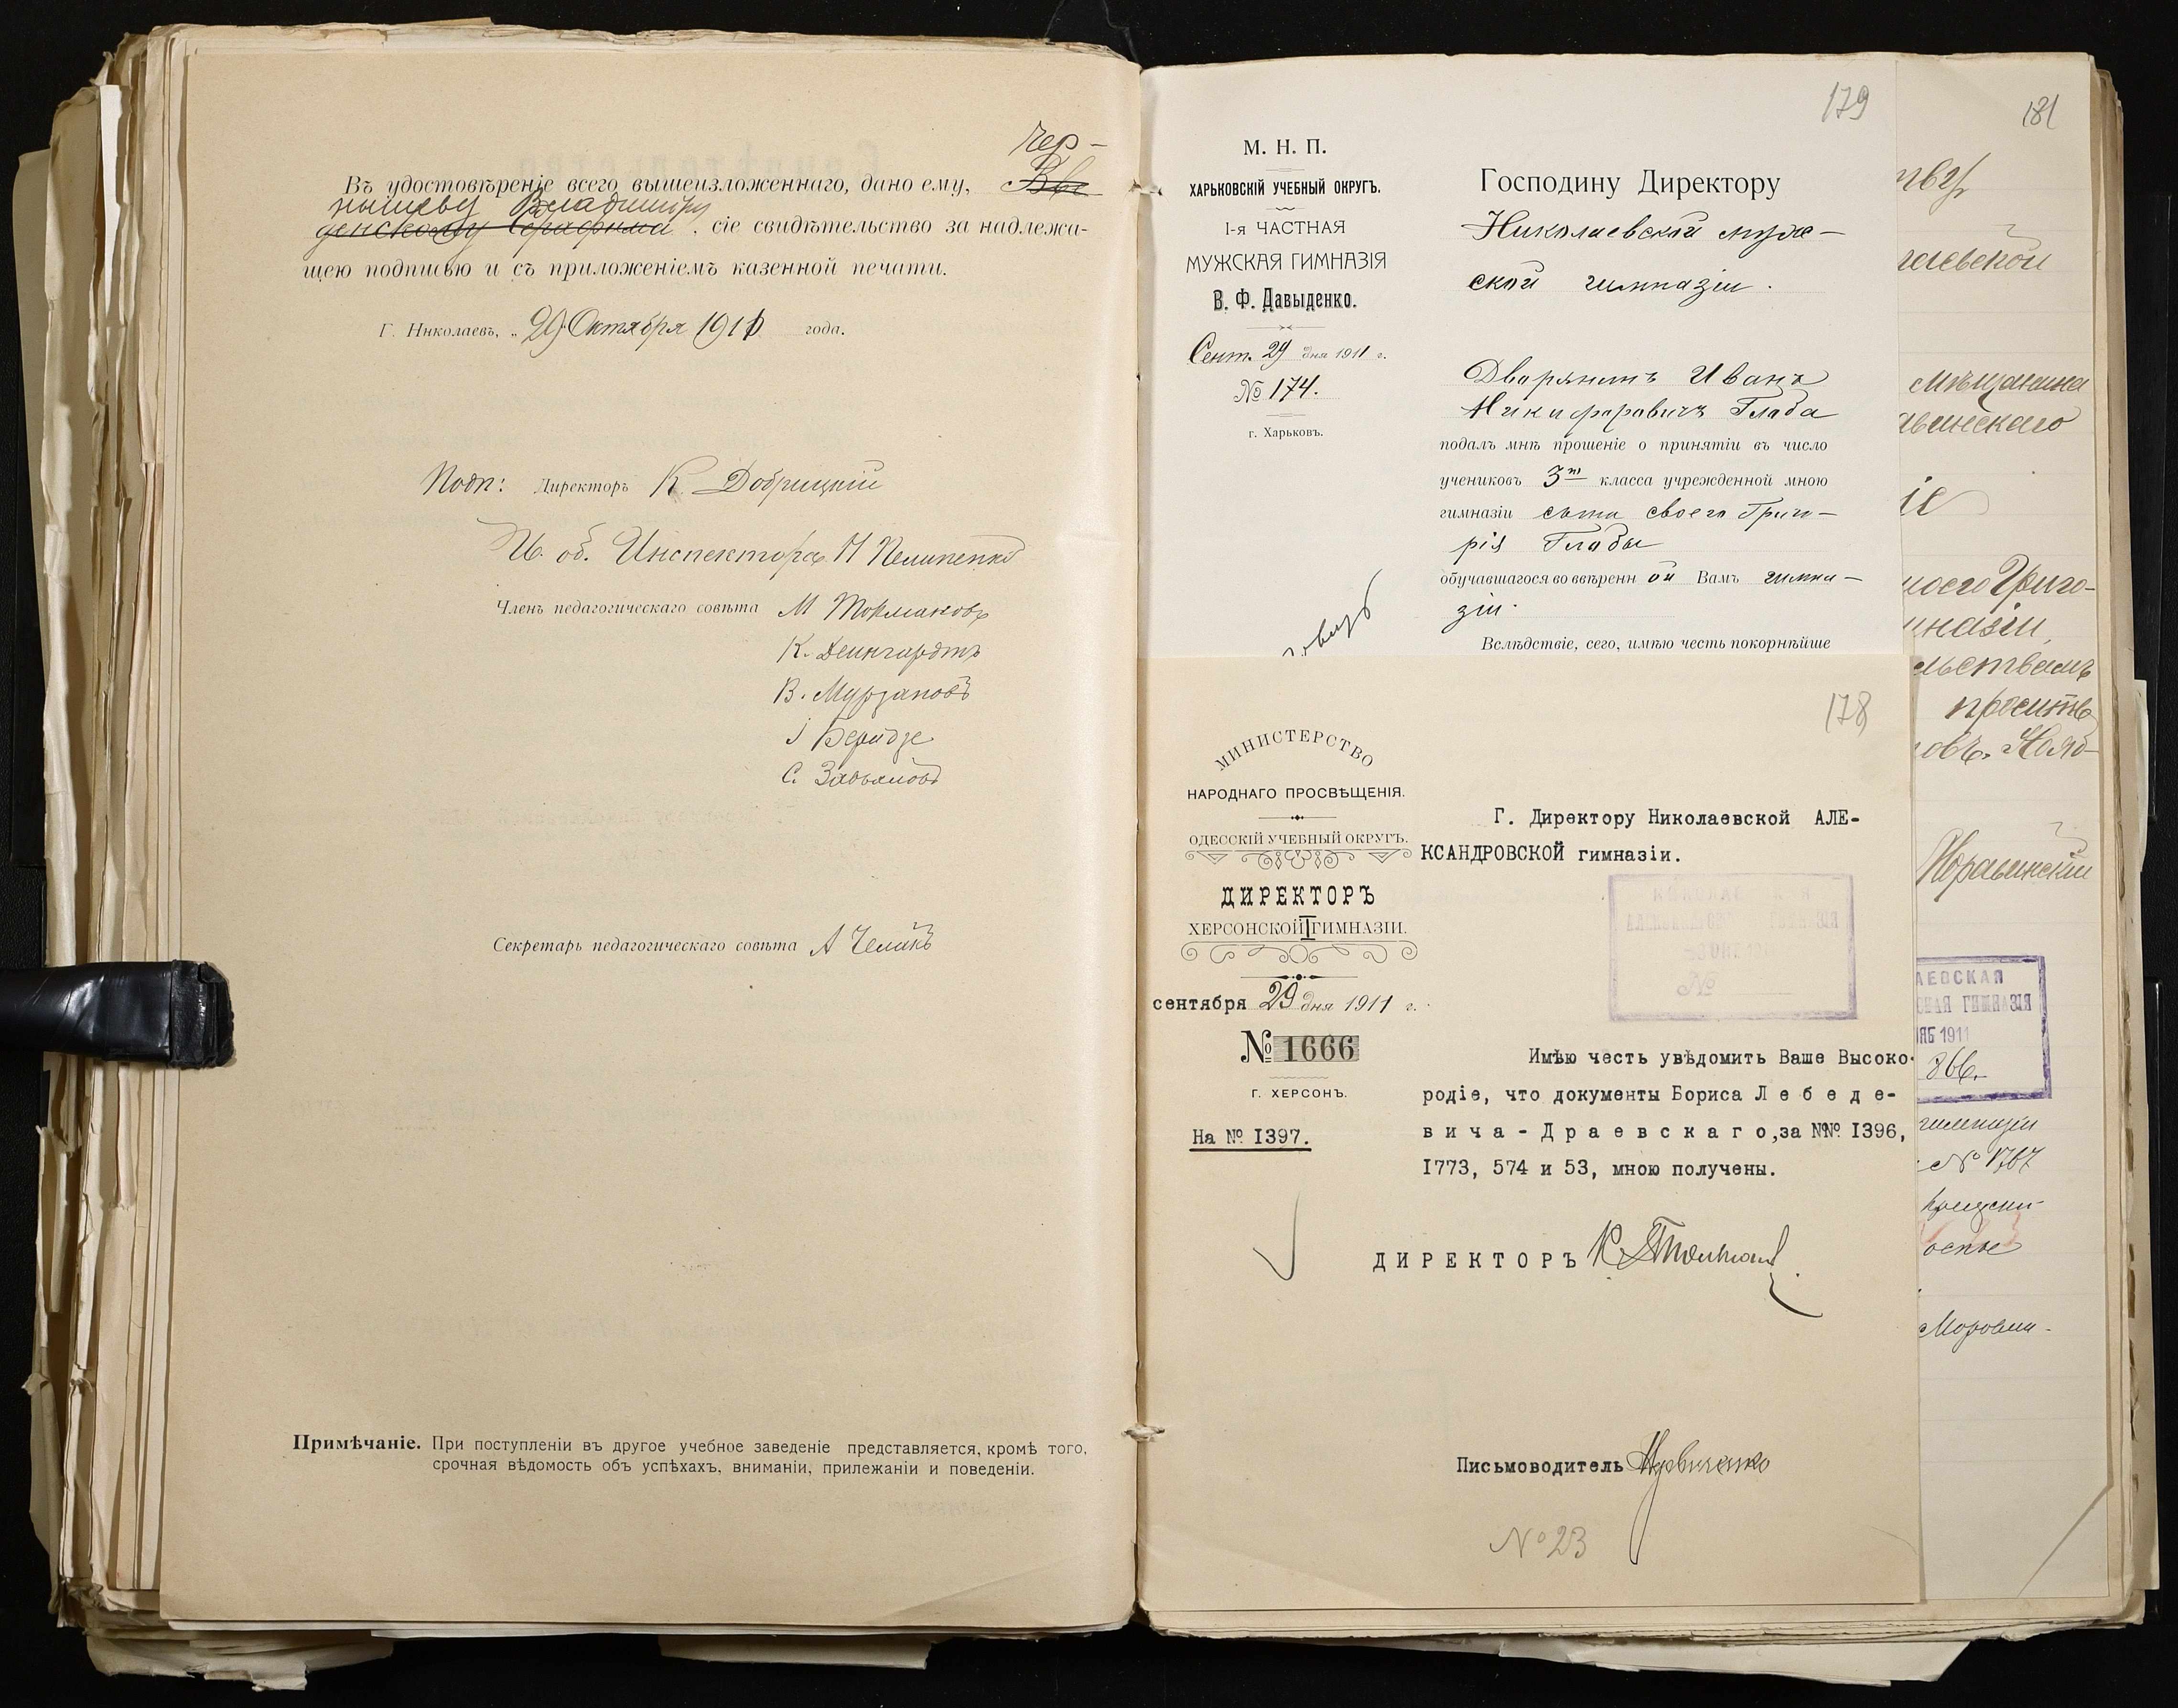 Чер-
Въ удостовѣреніе всего вышеизложеннаго, дано ему, Вве
нышеву Владиміру
денскому Серафима, сіе свидѣтельство за надлежа-
щею подписью и съ приложеніемъ казенной печати.
Г. Николаевъ, „29 Октября 1911 года.
Подп: Директоръ К. Добрицкій
И. об. Инспектора Н Пелипенко
Членъ педагогическаго совѣта М Токмаковъ
К. Деингардтъ
В. Мурзановъ
І Беридзе
С. Завьяловъ
Секретарь педагогическаго совѣта А Челикъ
Примѣчаніе. При поступленіи въ другое учебное заведеніе представляется, кромѣ того,
срочная вѣдомость объ успѣхахъ, вниманіи, прилежаніи и поведеніи.
179
М. Н. П.
ХАРЬКОВСКІЙ УЧЕБНЫЙ ОКРУГЪ.
І-я ЧАСТНАЯ
МУЖСКАЯ ГИМНАЗІЯ
В. Ф. Давыденко.
Сент. 29 дня 1911 г.
№ 174.
г. Харьковъ.
Господину Директору
Николаевской муж-
ской гимназіи.
Дворянинъ Иванъ
Никифоровичъ Глаба
подалъ мнѣ прошеніе о принятіи въ число
учениковъ 3го класса учрежденной мною
гимназіи сына своего Григо-
рія Глабы
обучавшагося во ввѣренной Вамъ гимна-
зіи.
Вслѣдствіе, сего, имѣю честь покорнѣйше
178
МИНИСТЕРСТВО
НАРОДНАГО ПРОСВѢЩЕНІЯ.
ОДЕССКІЙ УЧЕБНЫЙ ОКРУГЪ.
ДИРЕКТОРЪ
ХЕРСОНСКОЙ I ГИМНАЗІИ.
сентября 29 дня 1911 г.
№ 1666
Г. ХЕРСОНЪ.
На № I397.
Г. Директору Николаевской АЛЕ-
КСАНДРОВСКОЙ гимназіи.
Имѣю честь увѣдомить Ваше Высоко-
родіе, что документы Бориса Л е б е д е-
в и ч а - Д р а е в с к а г о, за №№ I396,
I773, 574 и 53, мною получены.
ДИРЕКТОРЪ
Письмоводитель
№ 23
181
аевской
мѣщанина
моего Григо-
гимназіи,
просить
АЕВСКАЯ
ГИМНАЗІЯ
1911
366.
гимназіи
№ 1767